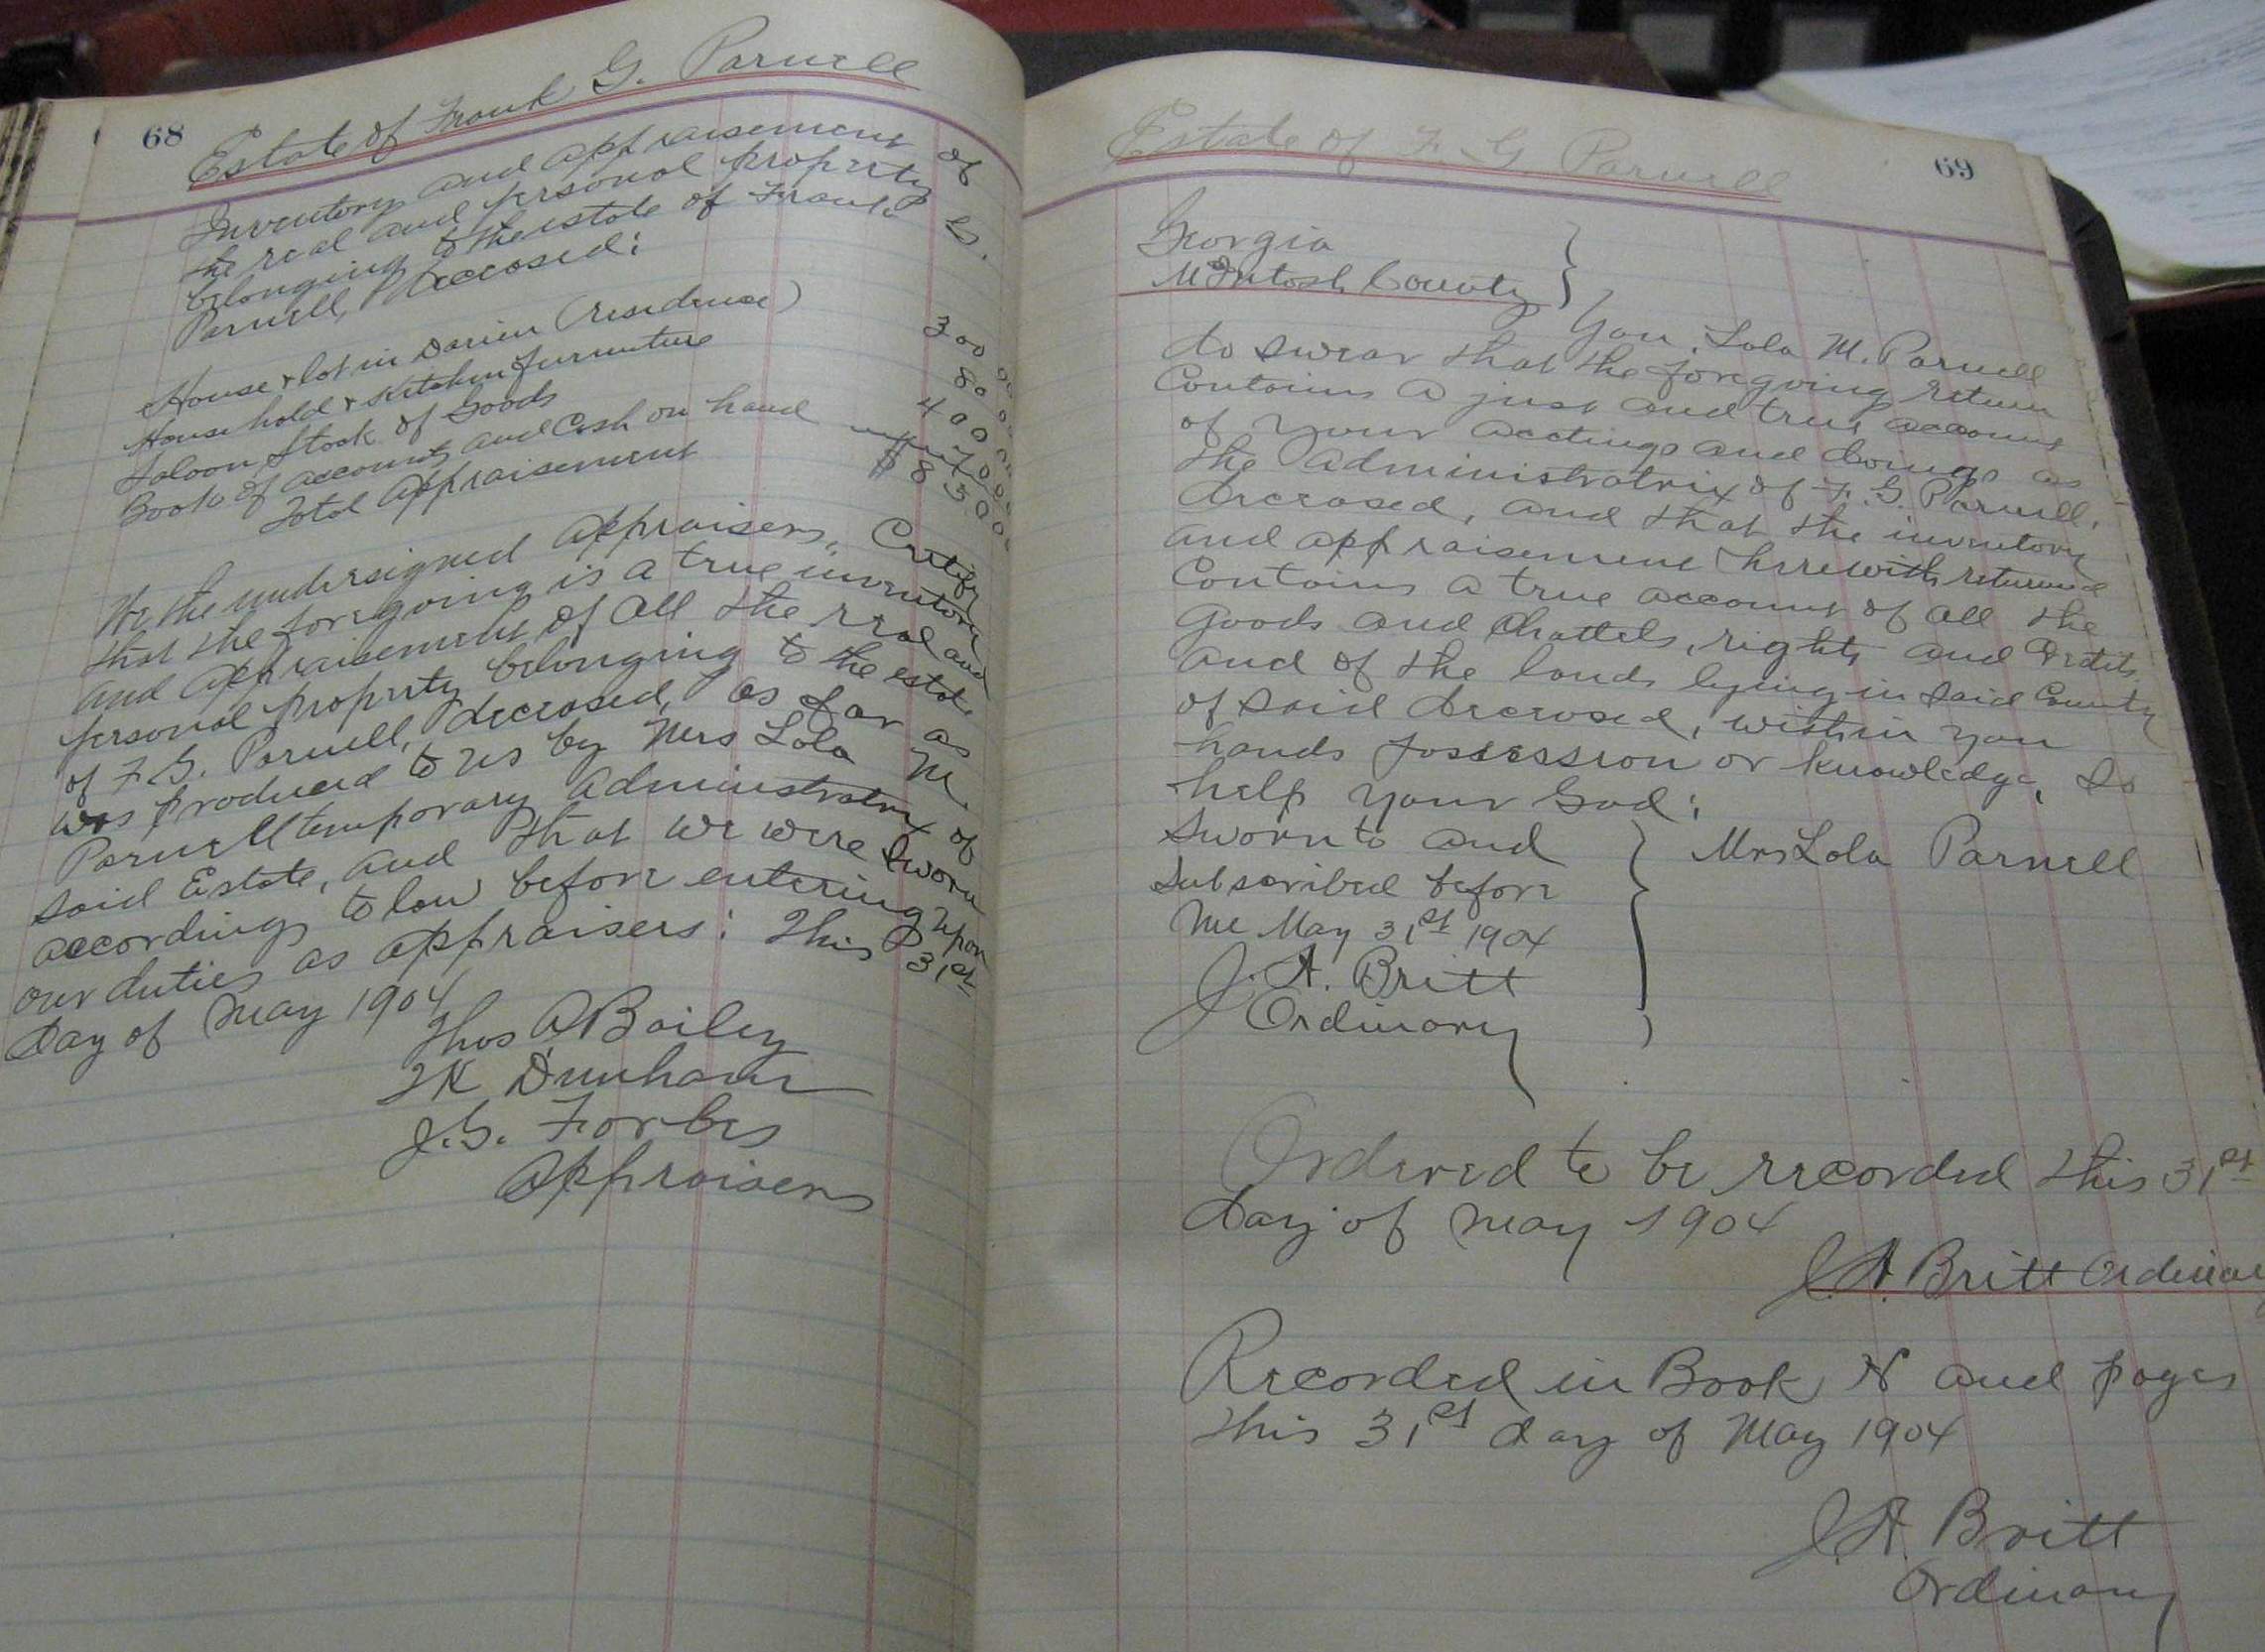 68
Estate of Frank G. Parnell
Inventory and appraisement of
the real and personal property
belonging to the estate of Frank G.
Parnell, Deceased:
House & lot in Darien (residence) 300 00
Household & Kitchen furniture 80 00
Saloon Stock of Goods 400 00
Book of accounts and Cash on hand 70 00
Total Appraisement $850 00
We the undersigned appraisers, Certify
that the foregoing is a true inventory
and appraisement of all the real and
personal property belonging to the estate
of F. G. Parnell, deceased, as far as
was produced to us by Mrs Lola M.
Parnell temporary administratrix of
said Estate, and that we were sworn
according to law before entering upon
our duties as appraisers: This 31st
day of May 1904
Thos A Bailey
Dunham
J. G. Forbes
Appraisers
69
Estate of F. G. Parnell
Georgia
McIntosh County
You, Lola M. Parnell
do swear that the foregoing return
Contains a just and true account
of your actings and doings as
the Administratrix of F. G. Parnell,
deceased, and that the inventory
and appraisement herewith returned
Contains a true account of all the
goods and Chattels, rights and Credits,
and of the lands lying in said County
of said deceased, within you
hands possession or knowledge, So
help your God:
Sworn to and
Subscribed before
me May 31st 1904
J. A. Britt
Ordinary
Mrs Lola Parnell
Ordered to be recorded this 31st
day of May 1904
J. A. Britt Ordinary
Recorded in Book N and pages
this 31st day of May 1904
J. A. Britt
Ordinary